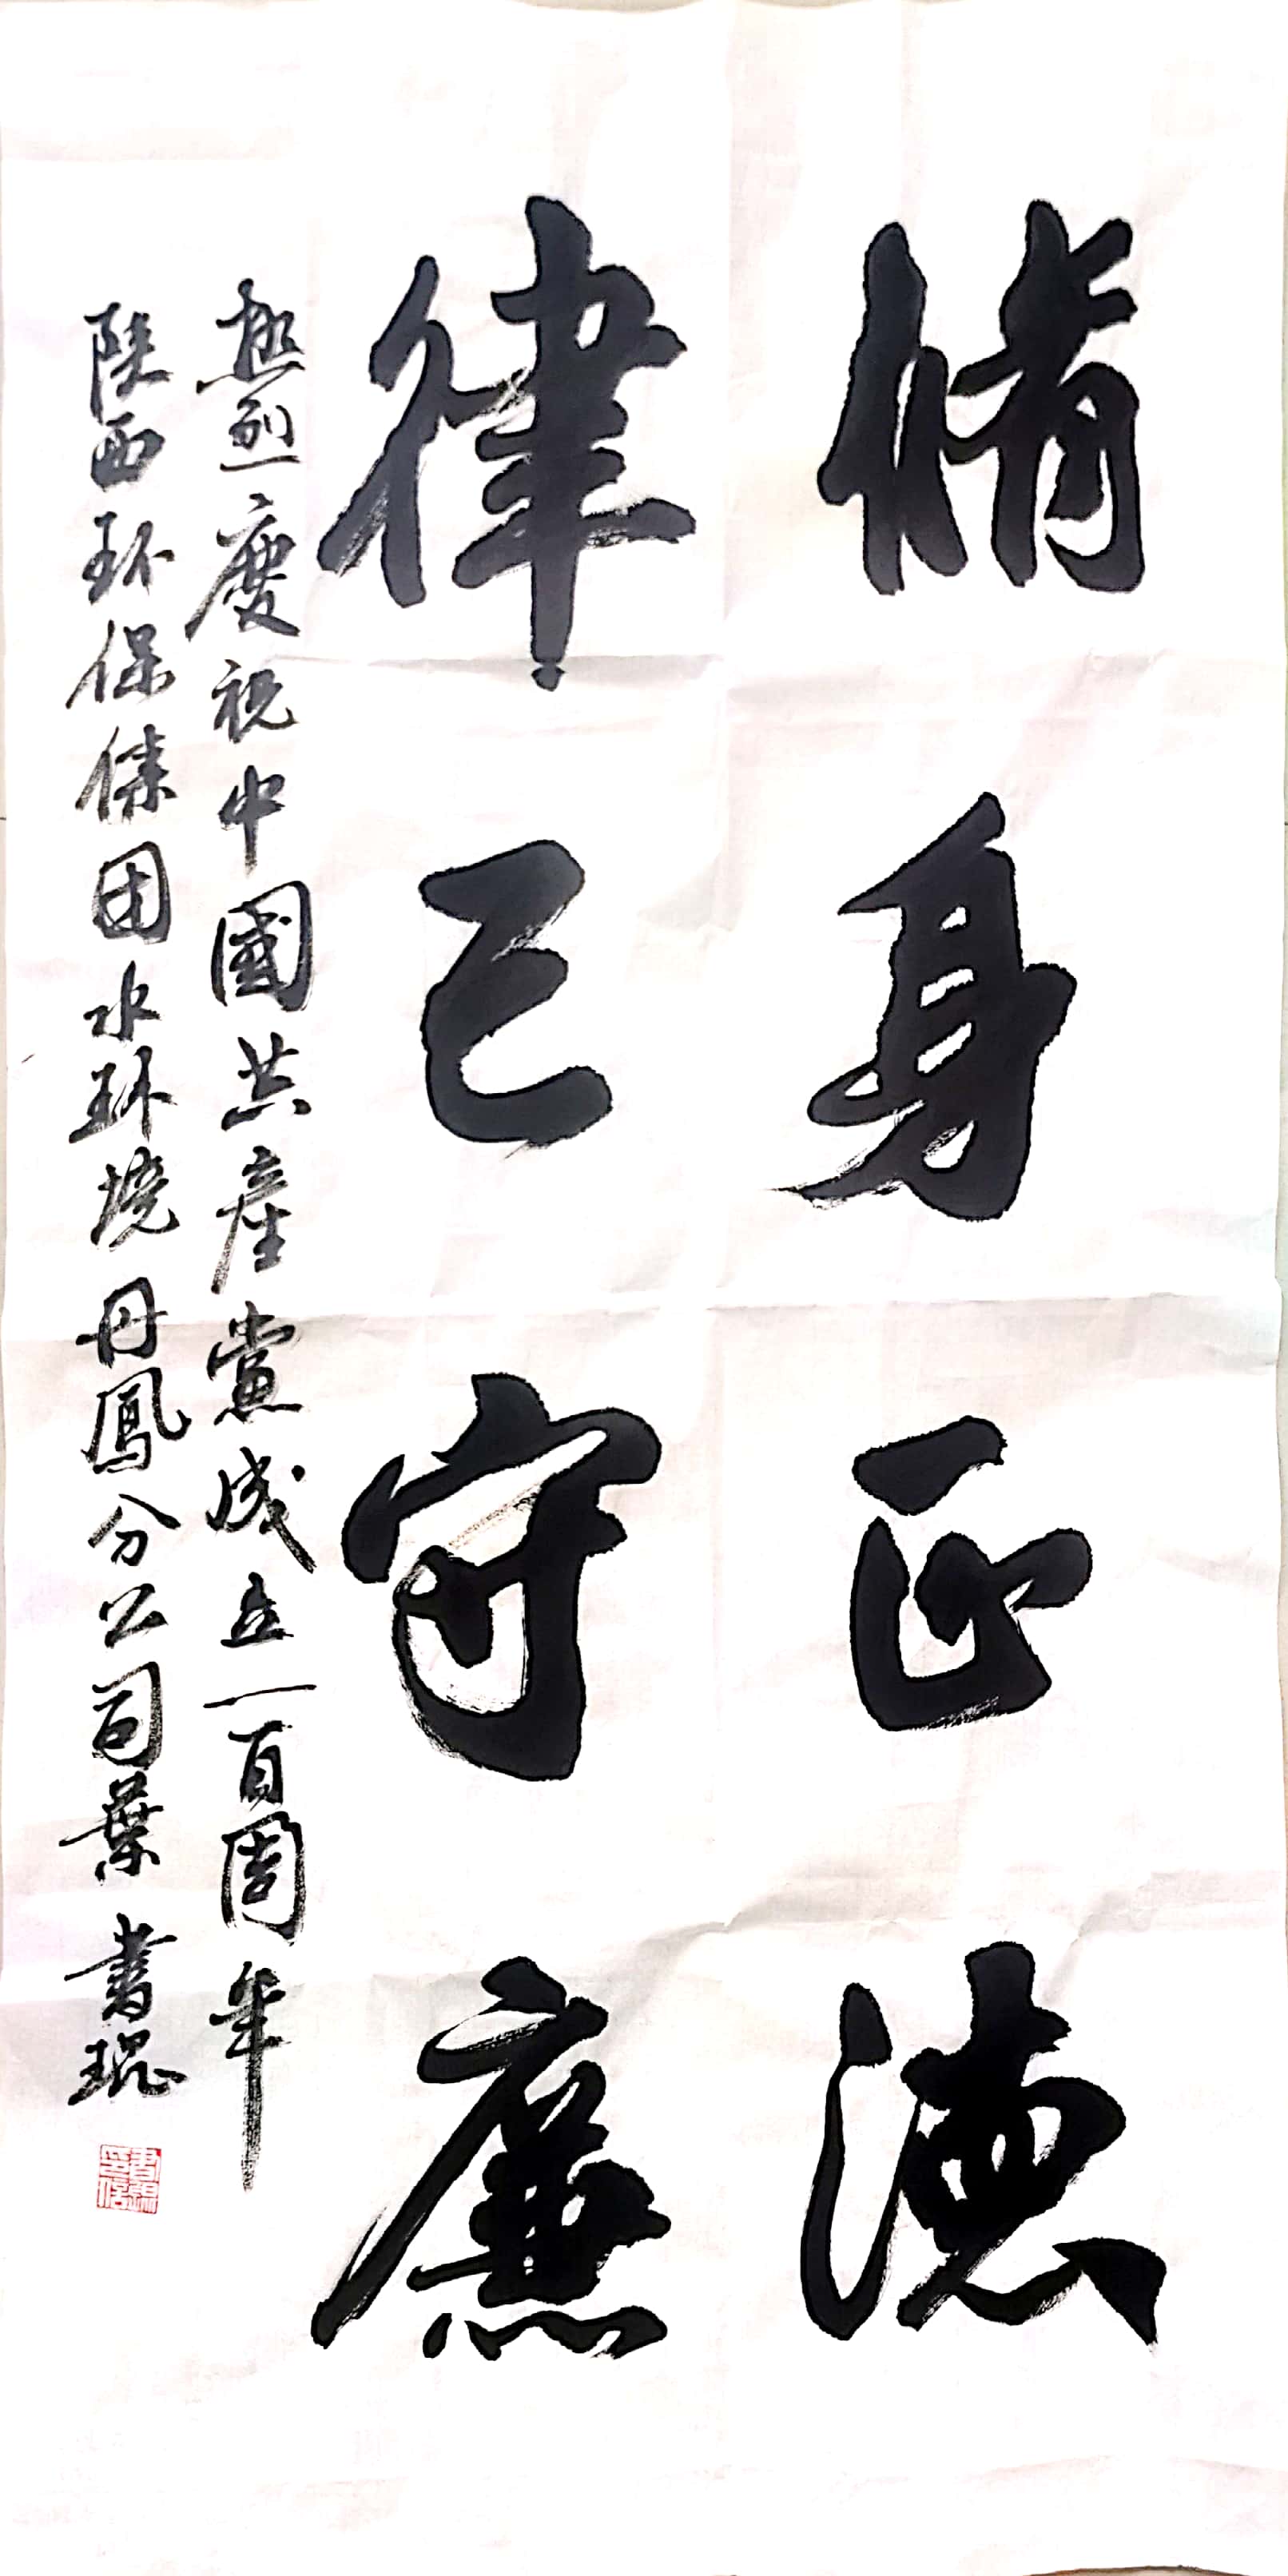 脩身正德
律己守廉
熱烈慶祝中國共産黨成立一百周年
陕西环保集团水环境丹鳳分公司葉書琨